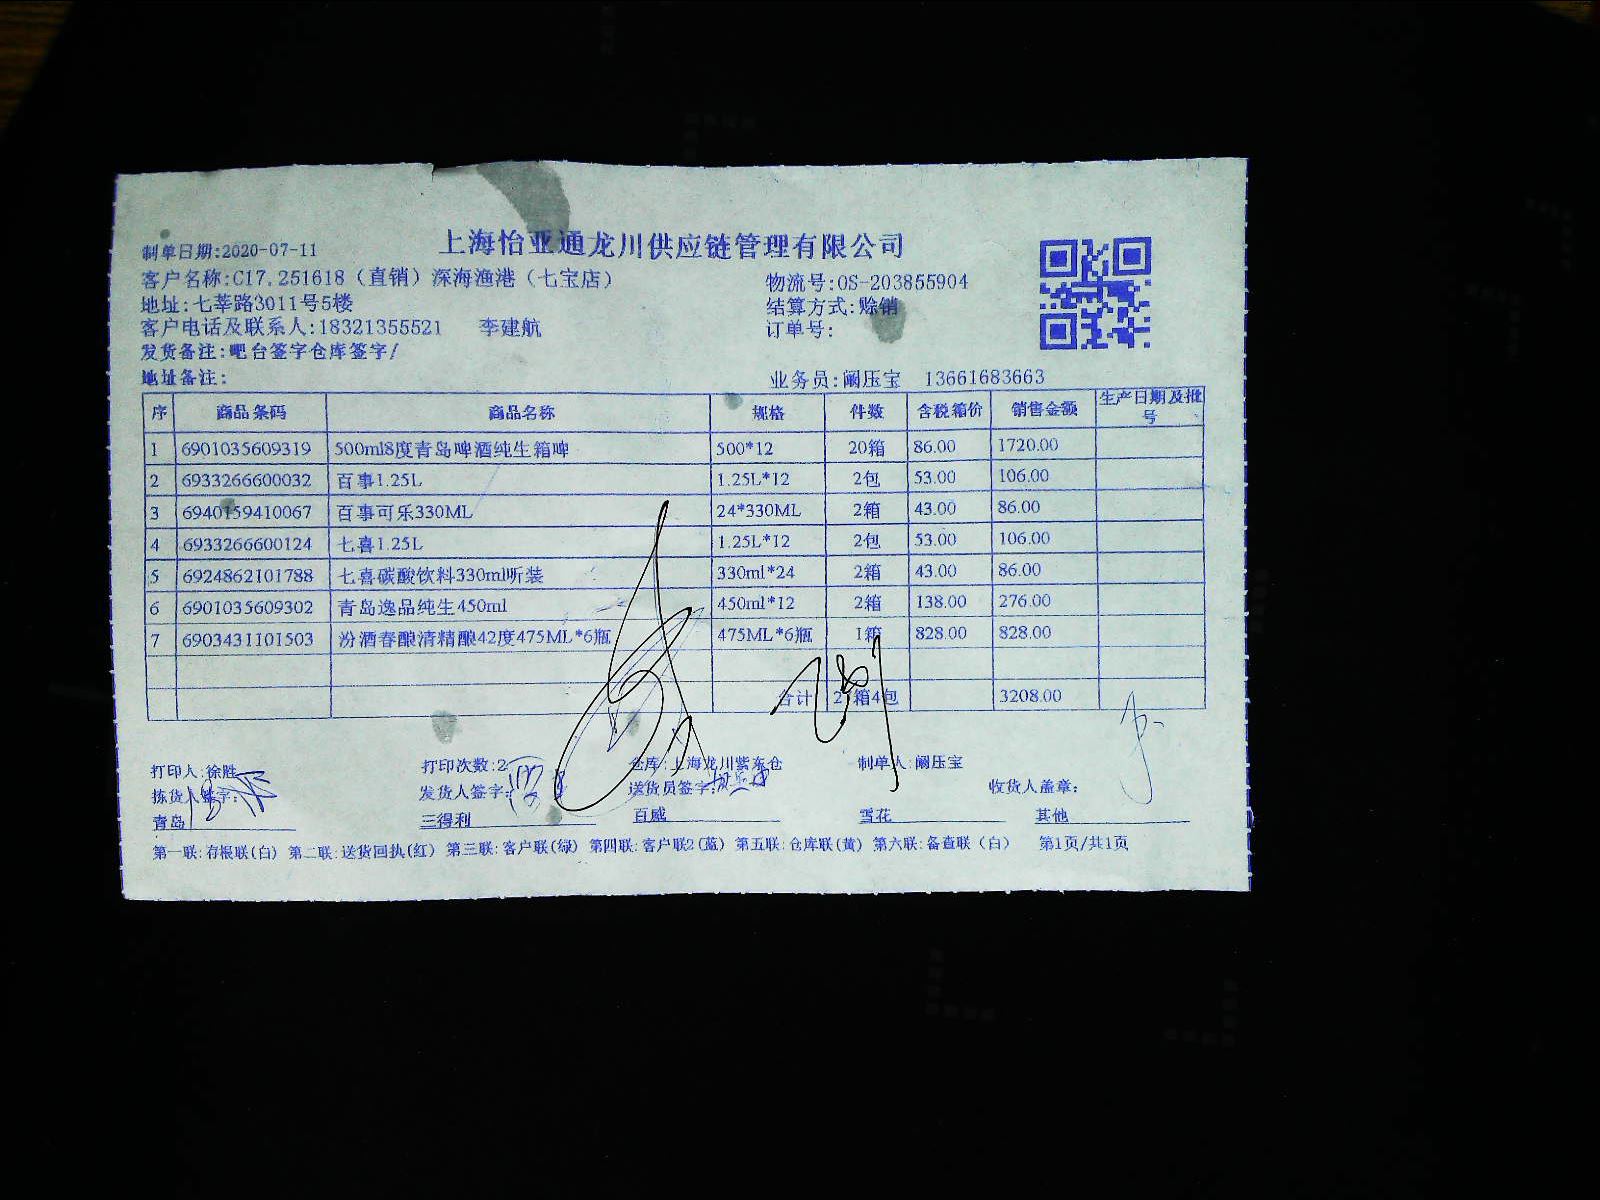 上海怡亚通龙川供应链管理有限公司
制单日期:2020-07-11
客户名称:C17.251618（直销）深海渔港（七宝店） 物流号:OS-203855904
地址:七莘路3011号5楼 结算方式:赊销
客户电话及联系人:18321355521 李建航 订单号:
发货备注:吧台签字仓库签字/
地址备注: 业务员:阚压宝 13661683663
序 商品条码 商品名称 规格 件数 含税箱价 销售金额 生产日期及批号
1 6901035609319 500ml8度青岛啤酒纯生箱啤 500*12 20箱 86.00 1720.00
2 6933266600032 百事1.25L 1.25L*12 2包 53.00 106.00
3 6940159410067 百事可乐330ML 24*330ML 2箱 43.00 86.00
4 6933266600124 七喜1.25L 1.25L*12 2包 53.00 106.00
5 6924862101788 七喜碳酸饮料330ml听装 330ml*24 2箱 43.00 86.00
6 6901035609302 青岛逸品纯生450ml 450ml*12 2箱 138.00 276.00
7 6903431101503 汾酒春酿清精酿42度475ML*6瓶 475ML*6瓶 1箱 828.00 828.00
合计 箱4包 3208.00
打印人:徐胜 打印次数:2 仓库:上海龙川紫东仓 制单人:阚压宝
拣货人签字: 发货人签字: 送货员签字: 收货人盖章:
青岛 三得利 百威 雪花 其他
第一联:存根联(白) 第二联:送货回执(红) 第三联:客户联(绿) 第四联:客户联2(蓝) 第五联:仓库联(黄) 第六联:备查联（白） 第1页/共1页